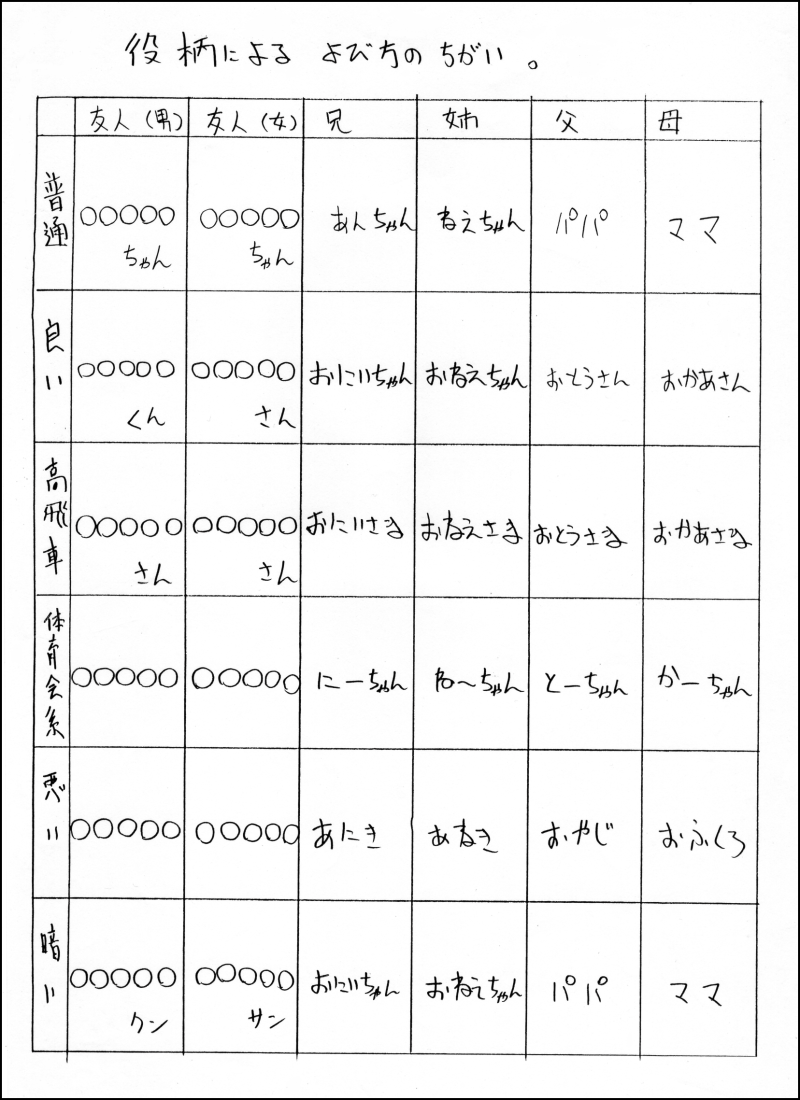 役柄による よび方の ちがい。
友人(男) 友人(女) 兄 姉 父 母
普通 ○○○○○ちゃん ○○○○○ちゃん あんちゃん ねえちゃん パパ ママ
良い ○○○○○くん ○○○○○さん おにいちゃん おねえちゃん おとうさん おかあさん
高飛車 ○○○○○さん ○○○○○さん おにいさま おねえさま おとうさま おかあさま
体育会系 ○○○○○ ○○○○○ にーちゃん ね〜ちゃん とーちゃん かーちゃん
悪い ○○○○○ ○○○○○ あにき あねき おやじ おふくろ
暗い ○○○○○クン ○○○○○サン おにいちゃん おねえちゃん パパ ママ